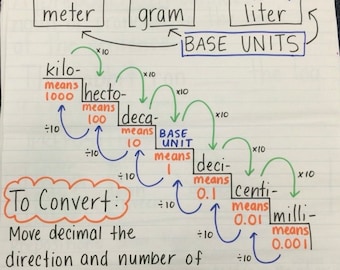 meter gram liter
BASE UNITS
x10
kilo-
means
1000
x10
hecto-
means
100
÷10
x10
deca-
means
10
÷10
x10
BASE
UNIT
means
1
÷10
x10
deci-
means
0.1
÷10
x10
centi-
means
0.01
÷10
milli-
means
0.001
÷10
To Convert:
Move decimal the
direction and number of